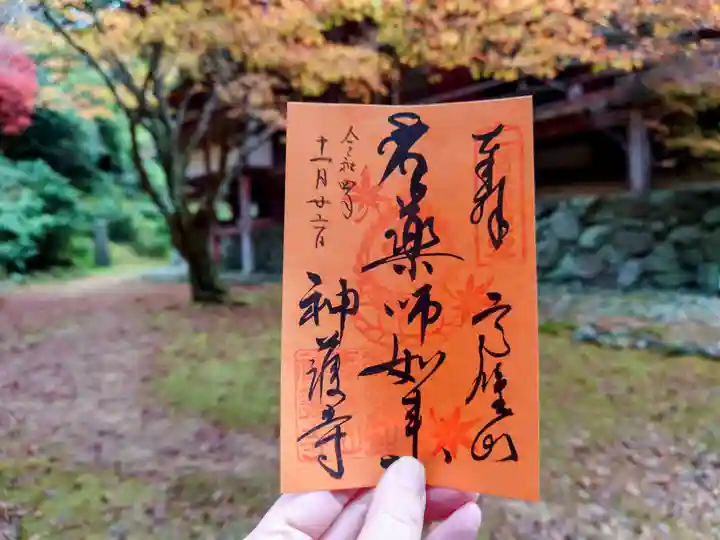 奉拝
高雄山
薬師如来
令和四年
十一月
神護寺